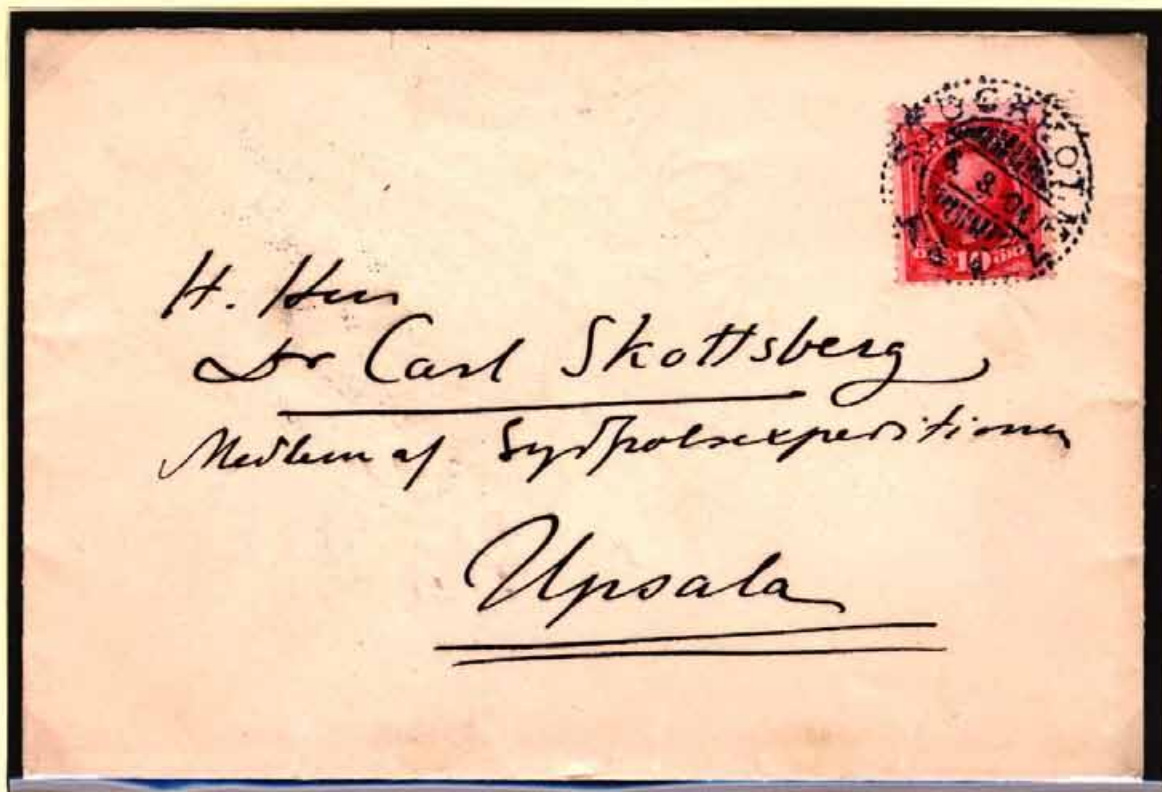 10
H. Herr
Dr Carl Skottsberg
Medlem af Sydpolsexpeditionen
Upsala